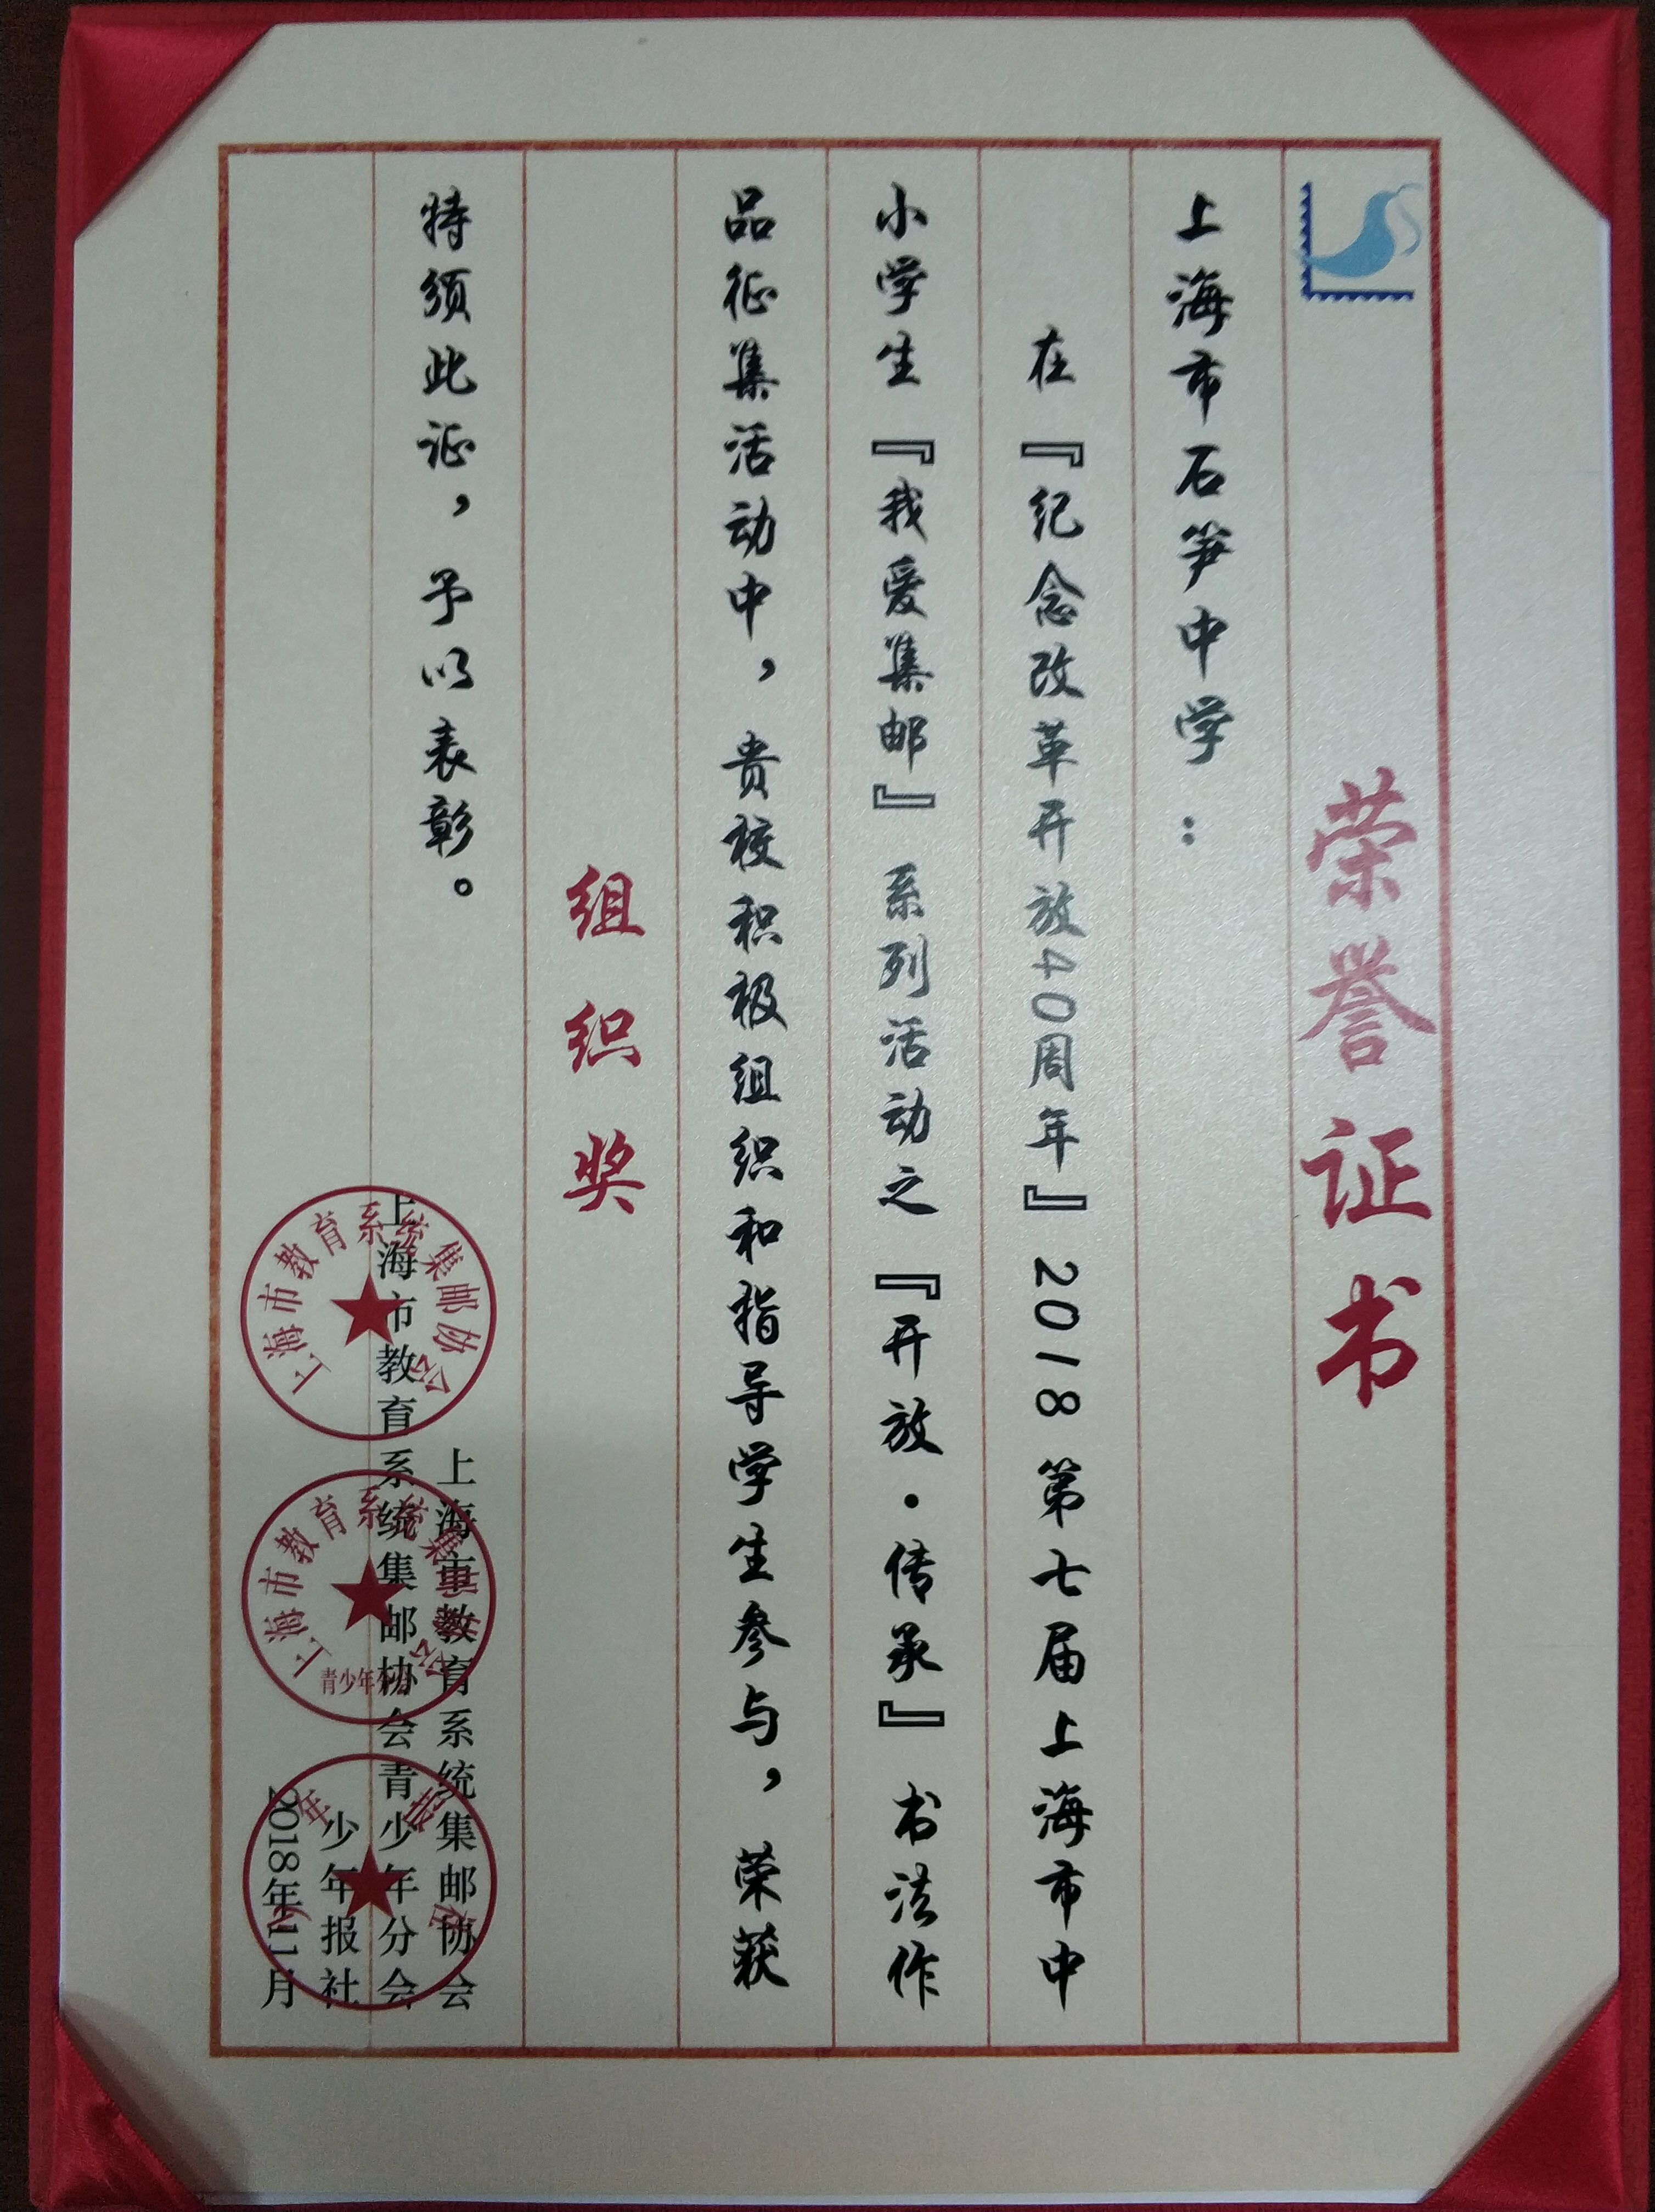 荣誉证书
上海市石笋中学：
在『纪念改革开放40周年』2018第七届上海市中
小学生『我爱集邮』系列活动之『开放·传承』书法作
品征集活动中，贵校积极组织和指导学生参与，荣获
组织奖
特颁此证，予以表彰。
上海市教育系统集邮协会
上海市教育系统集邮协会青少年分会
少年报社
2018年11月
上海市教育系统集邮协会
上海市教育系统集邮协会
青少年分会
少年报社